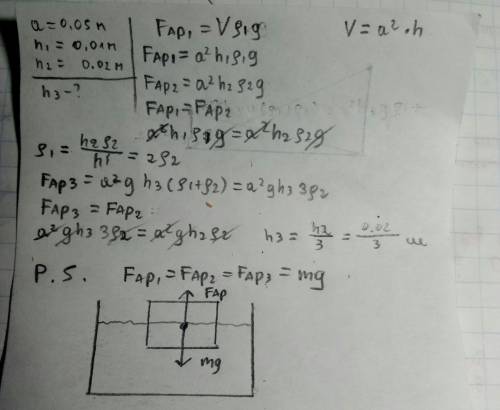 a = 0,05 м
h₁ = 0,01 м
h₂ = 0.02 м
h₃ - ?
Fар₁ = Vρ₁g
V = a² · h
Fар₁ = a²h₁ρ₁g
Fар₂ = a²h₂ρ₂g
Fар₁ = Fар₂
a²h₁ρ₁g = a²h₂ρ₂g
ρ₁ = h₂ρ₂/h₁ = 2ρ₂
Fар₃ = a²g h₃(ρ₁+ρ₂) = a²gh₃3ρ₂
Fар₃ = Fар₂
a²gh₃3ρ₂ = a²gh₂ρ₂ h₃ = h₂/3 = 0.02/3 м
P.S. Fар₁ = Fар₂ = Fар₃ = mg
Fар
mg